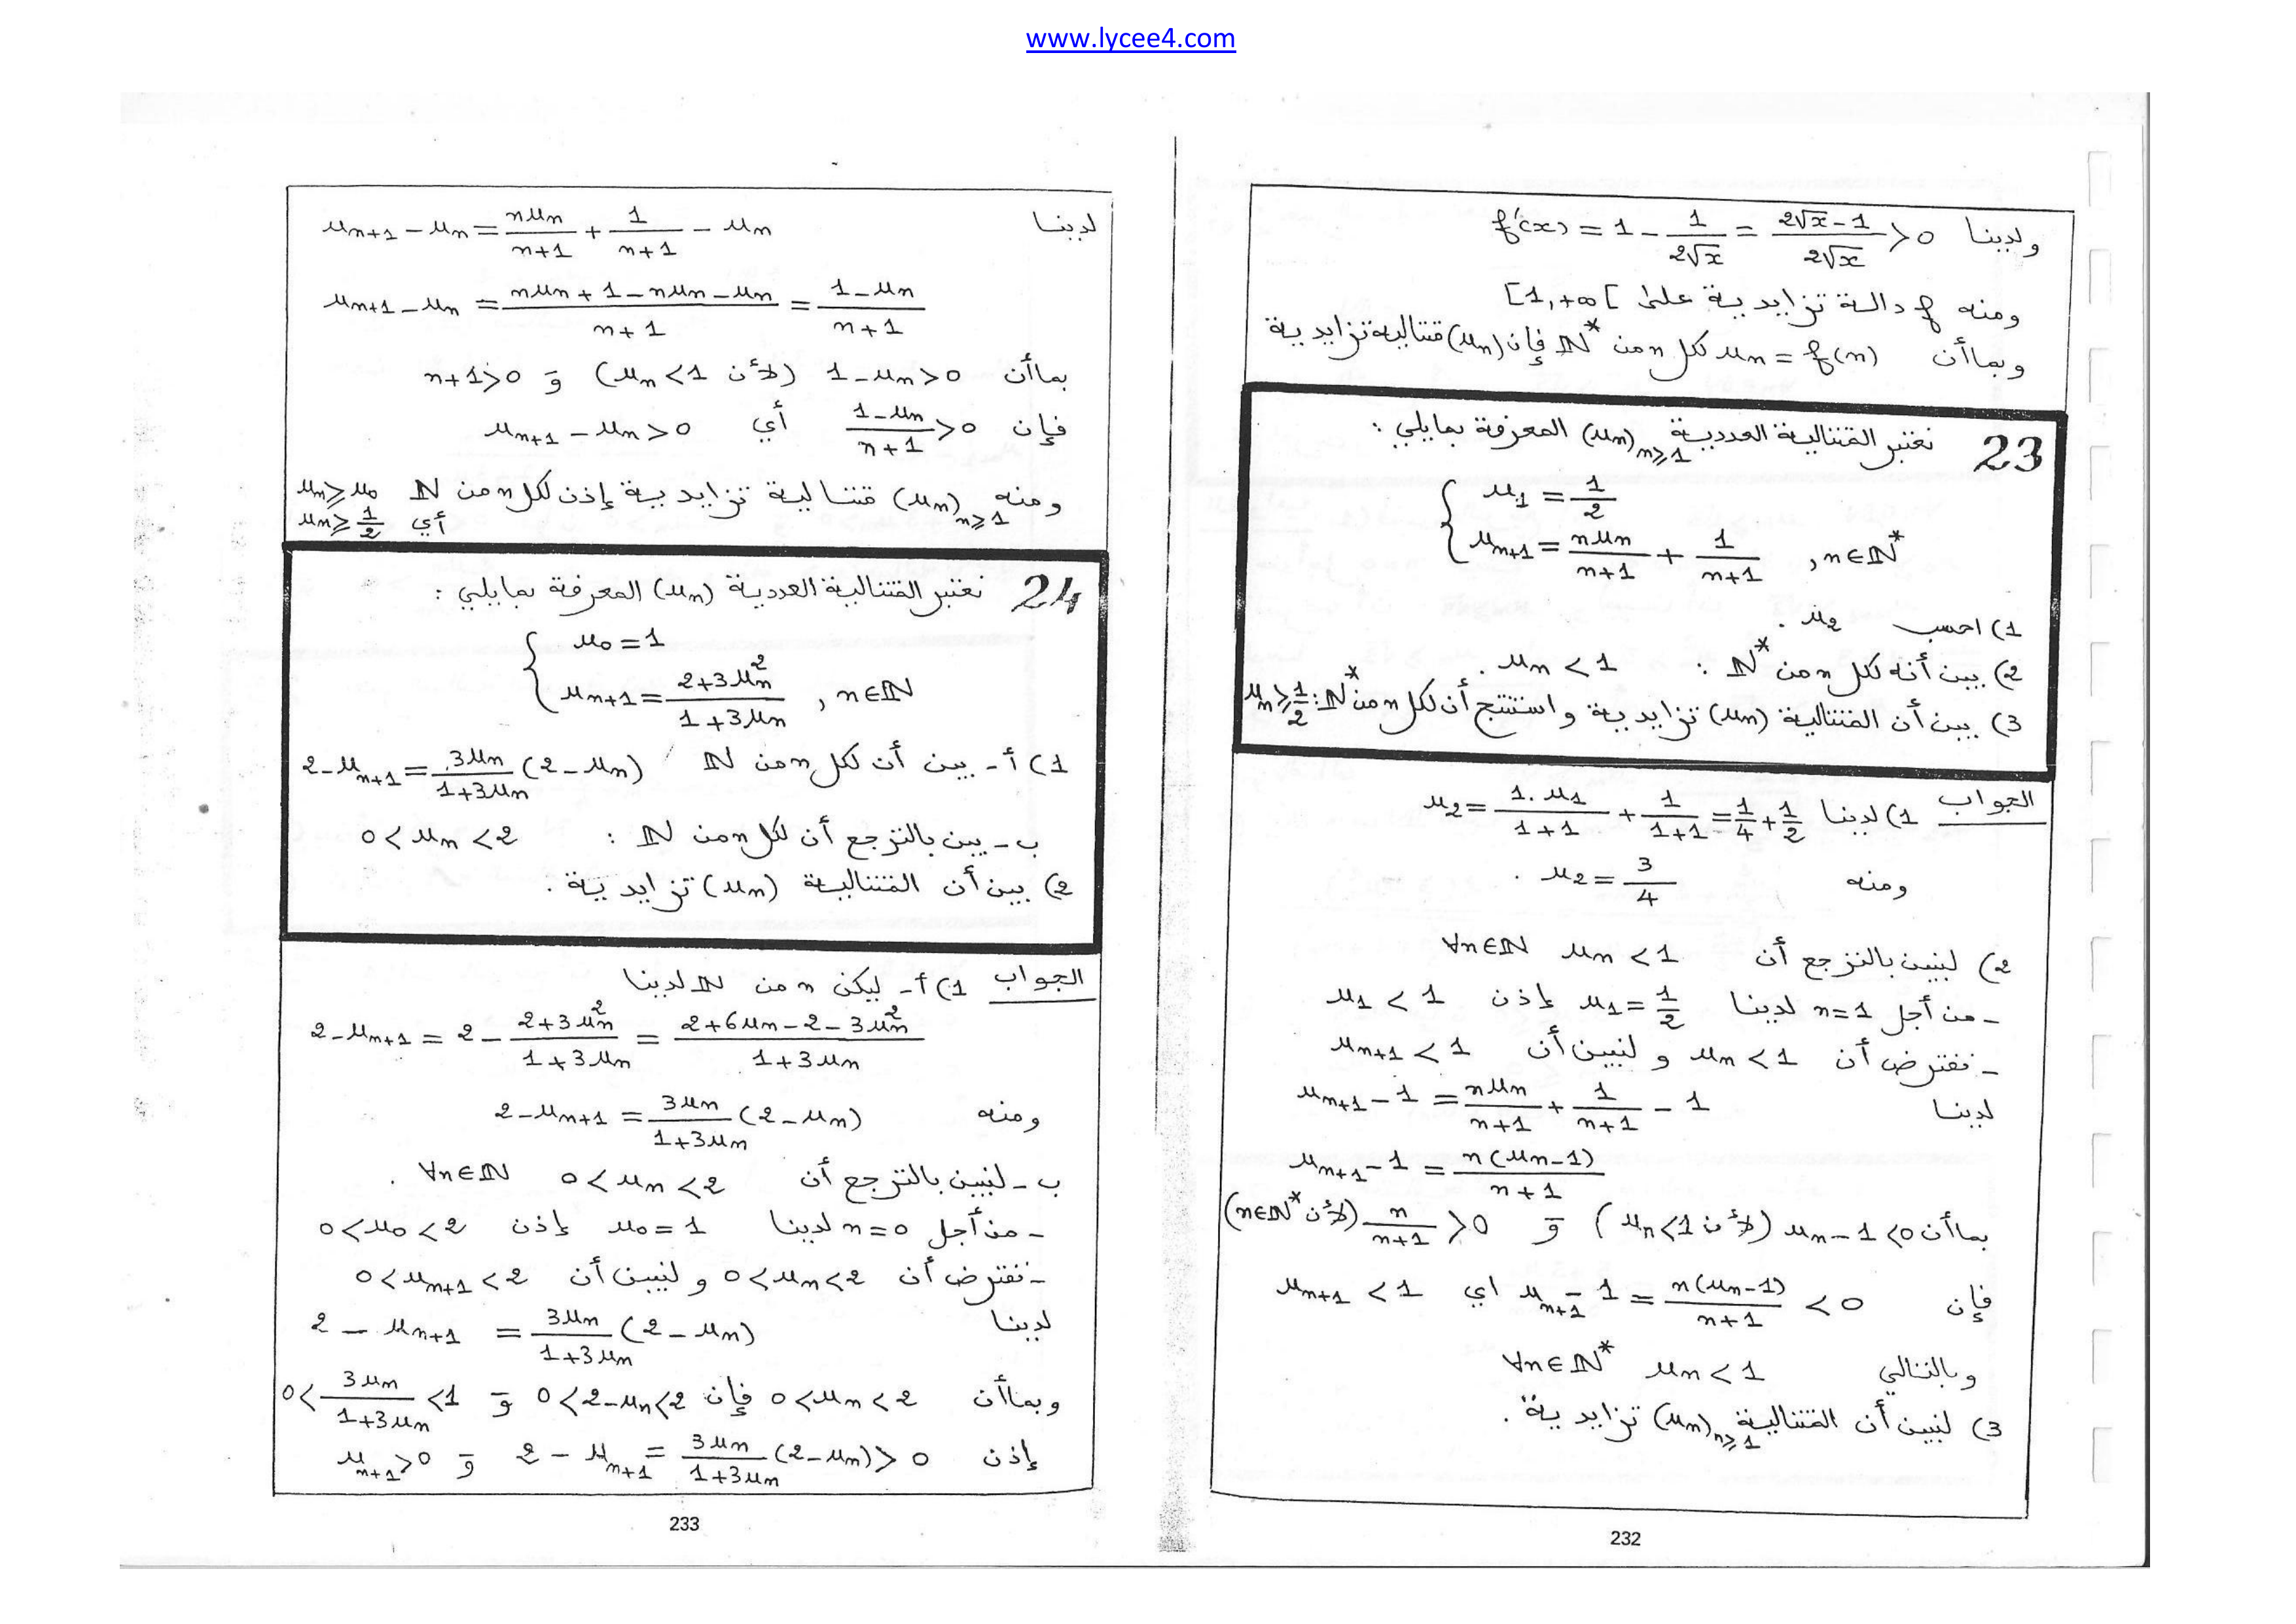 www.lycee4.com
ولدينا f'(x) = 1 - 1/(2√x) = (2√x - 1)/(2√x) > 0
ومنه f دالة تزايدية على [1,+∞[
وبما أن u_n = f(n) لكل n من N* فإن (u_n) متتالية تزايدية
23 نعتبر المتتالية العددية (u_n)_{n≥1} المعرفة بمايلي :
{ u_1 = 1/2
u_{n+1} = n u_n/(n+1) + 1/(n+1) , n∈N*
1) احسب u_2 .
2) بين أنه لكل n من N* : u_n < 1 .
3) بين أن المتتالية (u_n) تزايدية واستنتج أن لكل n من N* : u_n ≥ 1/2
الجواب 1) لدينا u_2 = 1.u_1/(1+1) + 1/(1+1) = 1/4 + 1/2
ومنه u_2 = 3/4 .
2) لنبين بالترجع أن u_n < 1 ∀n∈N
- من أجل n=1 لدينا u_1 = 1/2 إذن u_1 < 1
- نفترض أن u_n < 1 و لنبين أن u_{n+1} < 1
لدينا u_{n+1} - 1 = n u_n/(n+1) + 1/(n+1) - 1
u_{n+1} - 1 = n(u_n - 1)/(n+1)
بما أن u_n - 1 < 0 (لأن u_n < 1) و n/(n+1) > 0 (لأن n∈N*)
فإن u_{n+1} - 1 = n(u_n - 1)/(n+1) < 0 اي u_{n+1} < 1
وبالتالي u_n < 1 ∀n∈N*
3) لنبين أن المتتالية (u_n)_{n≥1} تزايدية .
232
لدينا u_{n+1} - u_n = n u_n/(n+1) + 1/(n+1) - u_n
u_{n+1} - u_n = (n u_n + 1 - n u_n - u_n)/(n+1) = (1 - u_n)/(n+1)
بما أن 1 - u_n > 0 (لأن u_n < 1) و n+1 > 0
فإن (1 - u_n)/(n+1) > 0 أي u_{n+1} - u_n > 0
ومنه (u_n)_{n≥1} متتالية تزايدية إذن لكل n من N u_n ≥ u_0
أي u_n ≥ 1/2
24 نعتبر المتتالية العددية (u_n) المعرفة بمايلي :
{ u_0 = 1
u_{n+1} = (2+3u_n²)/(1+3u_n) , n∈N
1) أ- بين أن لكل n من N 2 - u_{n+1} = 3u_n/(1+3u_n) (2 - u_n)
ب- بين بالترجع أن لكل n من N : 0 < u_n < 2
2) بين أن المتتالية (u_n) تزايدية .
الجواب 1) أ- ليكن n من N لدينا
2 - u_{n+1} = 2 - (2+3u_n²)/(1+3u_n) = (2+6u_n-2-3u_n²)/(1+3u_n)
ومنه 2 - u_{n+1} = 3u_n/(1+3u_n) (2 - u_n)
ب- لنبين بالترجع أن 0 < u_n < 2 ∀n∈N .
- من أجل n=0 لدينا u_0 = 1 إذن 0 < u_0 < 2
- نفترض أن 0 < u_n < 2 و لنبين أن 0 < u_{n+1} < 2
لدينا 2 - u_{n+1} = 3u_n/(1+3u_n) (2 - u_n)
وبما أن 0 < u_n < 2 فإن 0 < 2-u_n < 2 و 0 < 3u_n/(1+3u_n) < 1
إذن 2 - u_{n+1} = 3u_n/(1+3u_n) (2-u_n) > 0 و u_{n+1} > 0
233